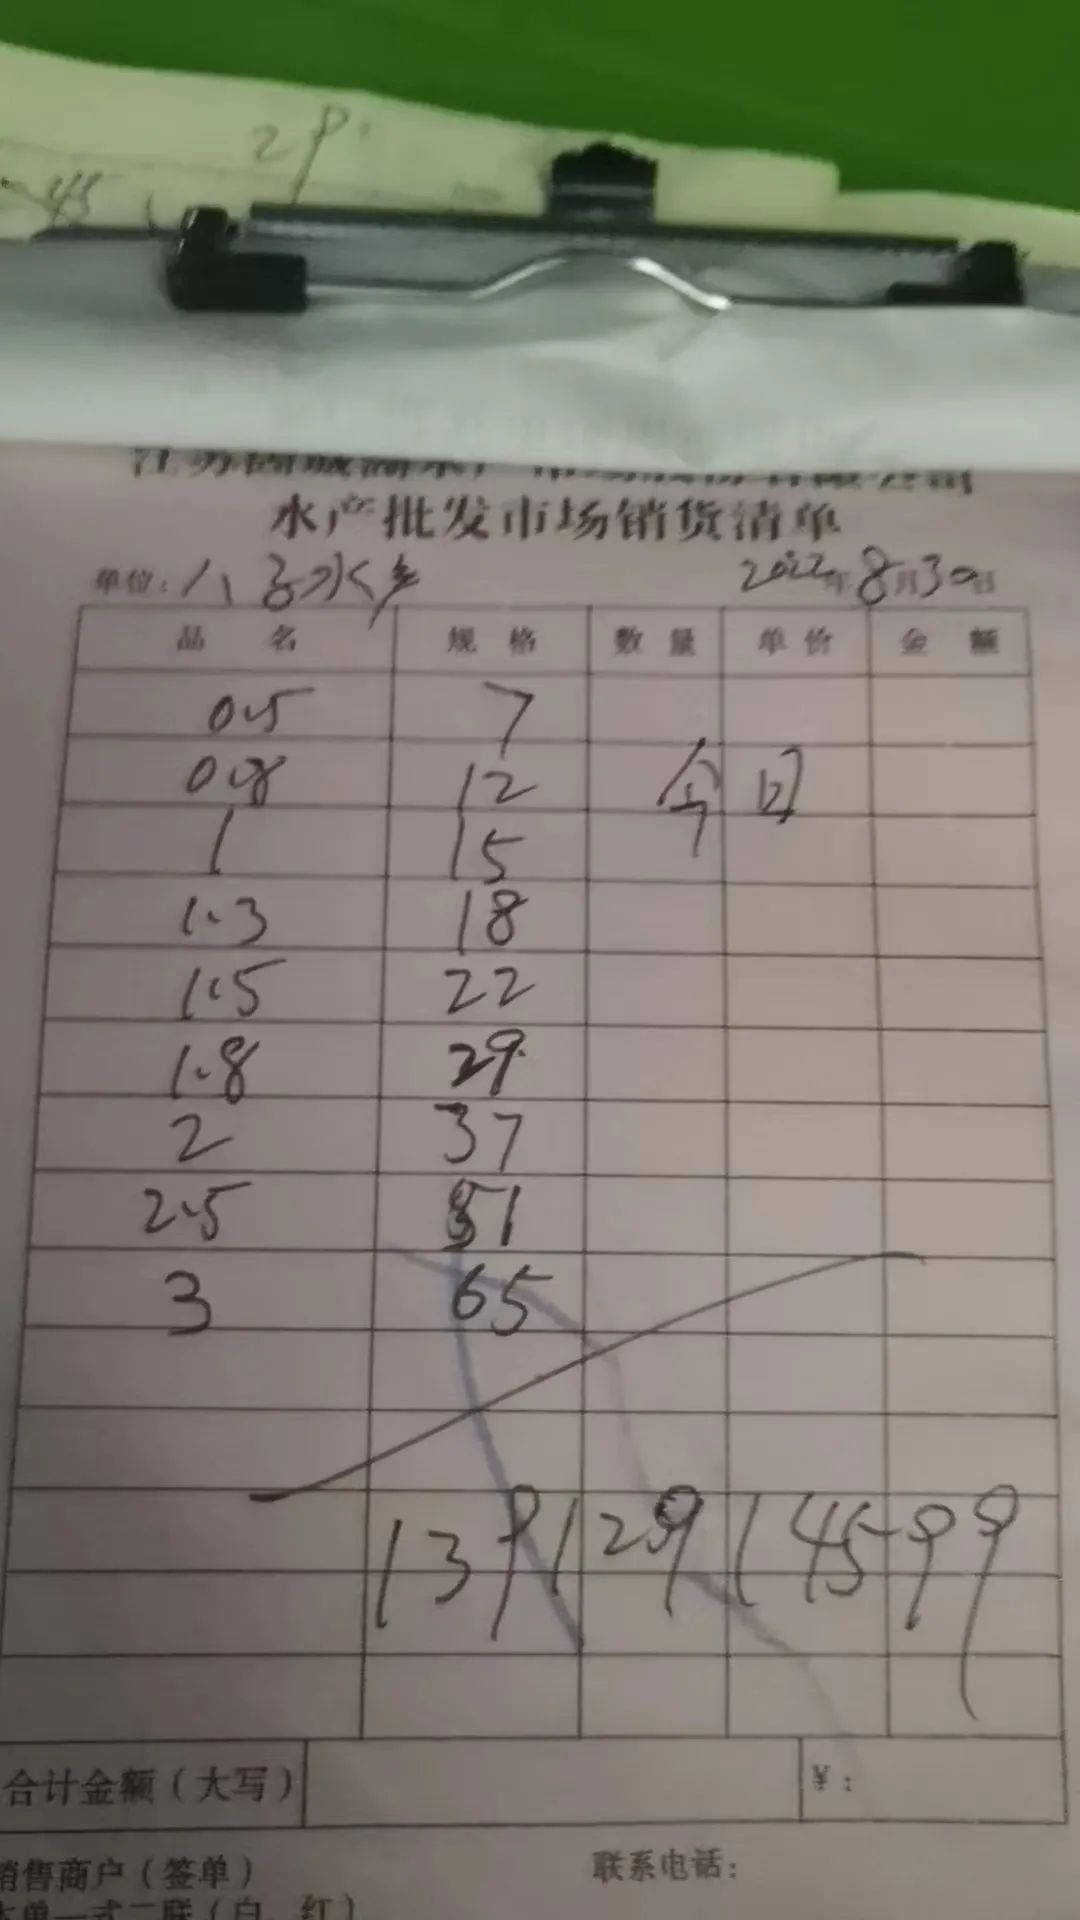 29
45
水产批发市场销货清单
单位：八子水乡 2022年8月30日
品 名 规 格 数 量 单 价 金 额
0.5 7
0.8 12 今日
1 15
1.3 18
1.5 22
1.8 29
2 37
2.5 51
3 65
139 129 145 99
合计金额（大写） ¥：
销售商户（签单） 联系电话：
本单一式二联（白、红）